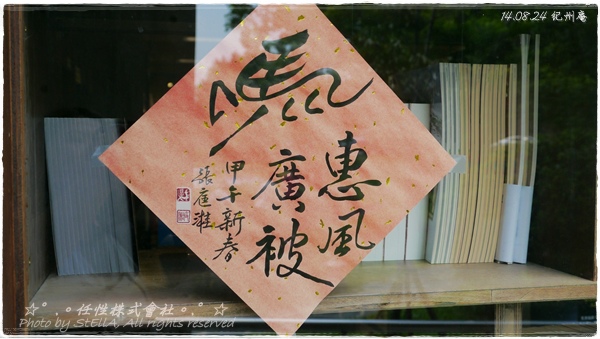 14.08.24 紀州庵
馬
惠風
廣被
甲午新春
☆°.。任性株式會社。.°☆
Photo by StEllA. All rights reserved